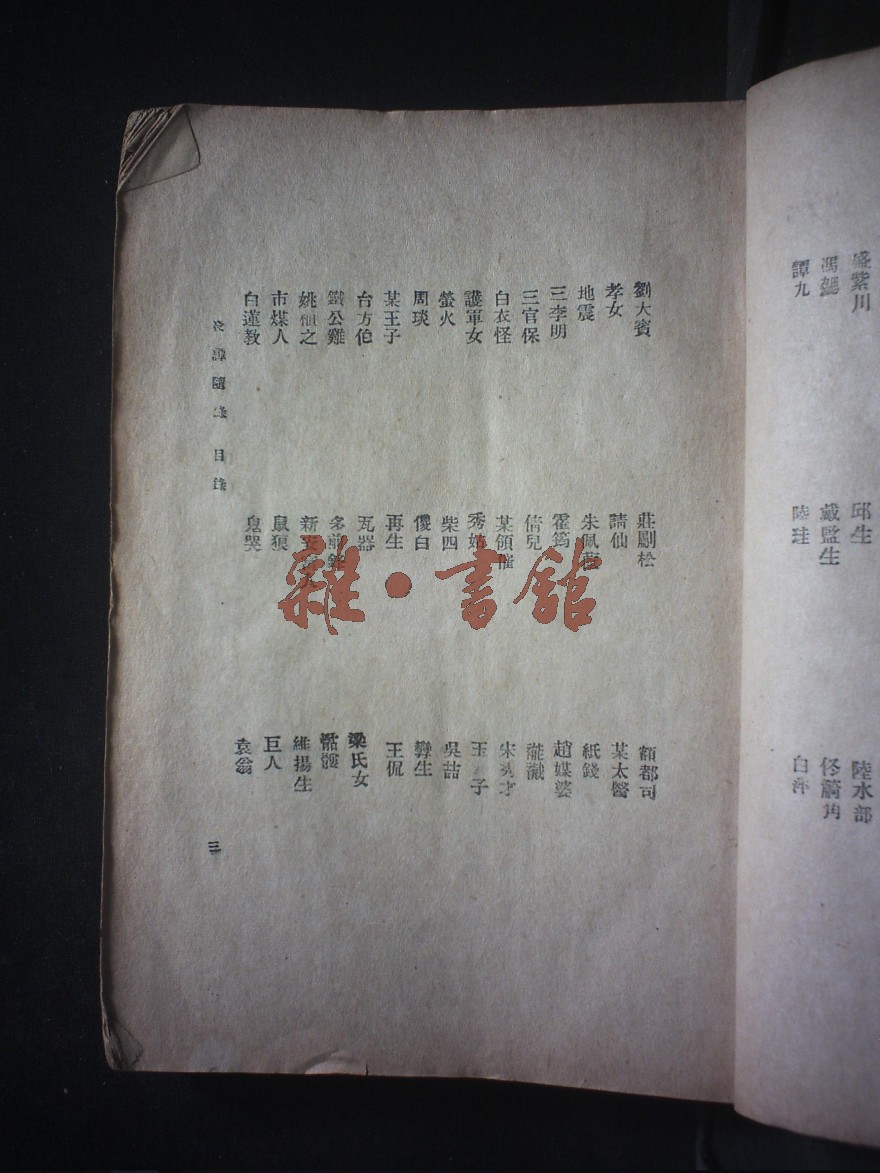 盛紫川 邱生 陸水部
馮勰 戴監生 佟觭角
譚九 陸珪 白萍
劉大賓 莊斸松 額都司
孝女 請仙 某太醫
地震 朱佩茝 紙錢
三李明 霍筠 趙媒婆
三官保 倩兒
白衣怪 某領催 宋秀才
護軍女 秀姑
螢火 柴四 吳喆
周琰 儍白 孿生
某王子 再生 王侃
台方伯 瓦器 梁氏女
鐵公雞 多前鋒 骷髏
姚慎之 維揚生
市煤人 鼠狼 巨人
白蓮教 鬼哭 袁翁
譚隨錄 目錄
雜·書館